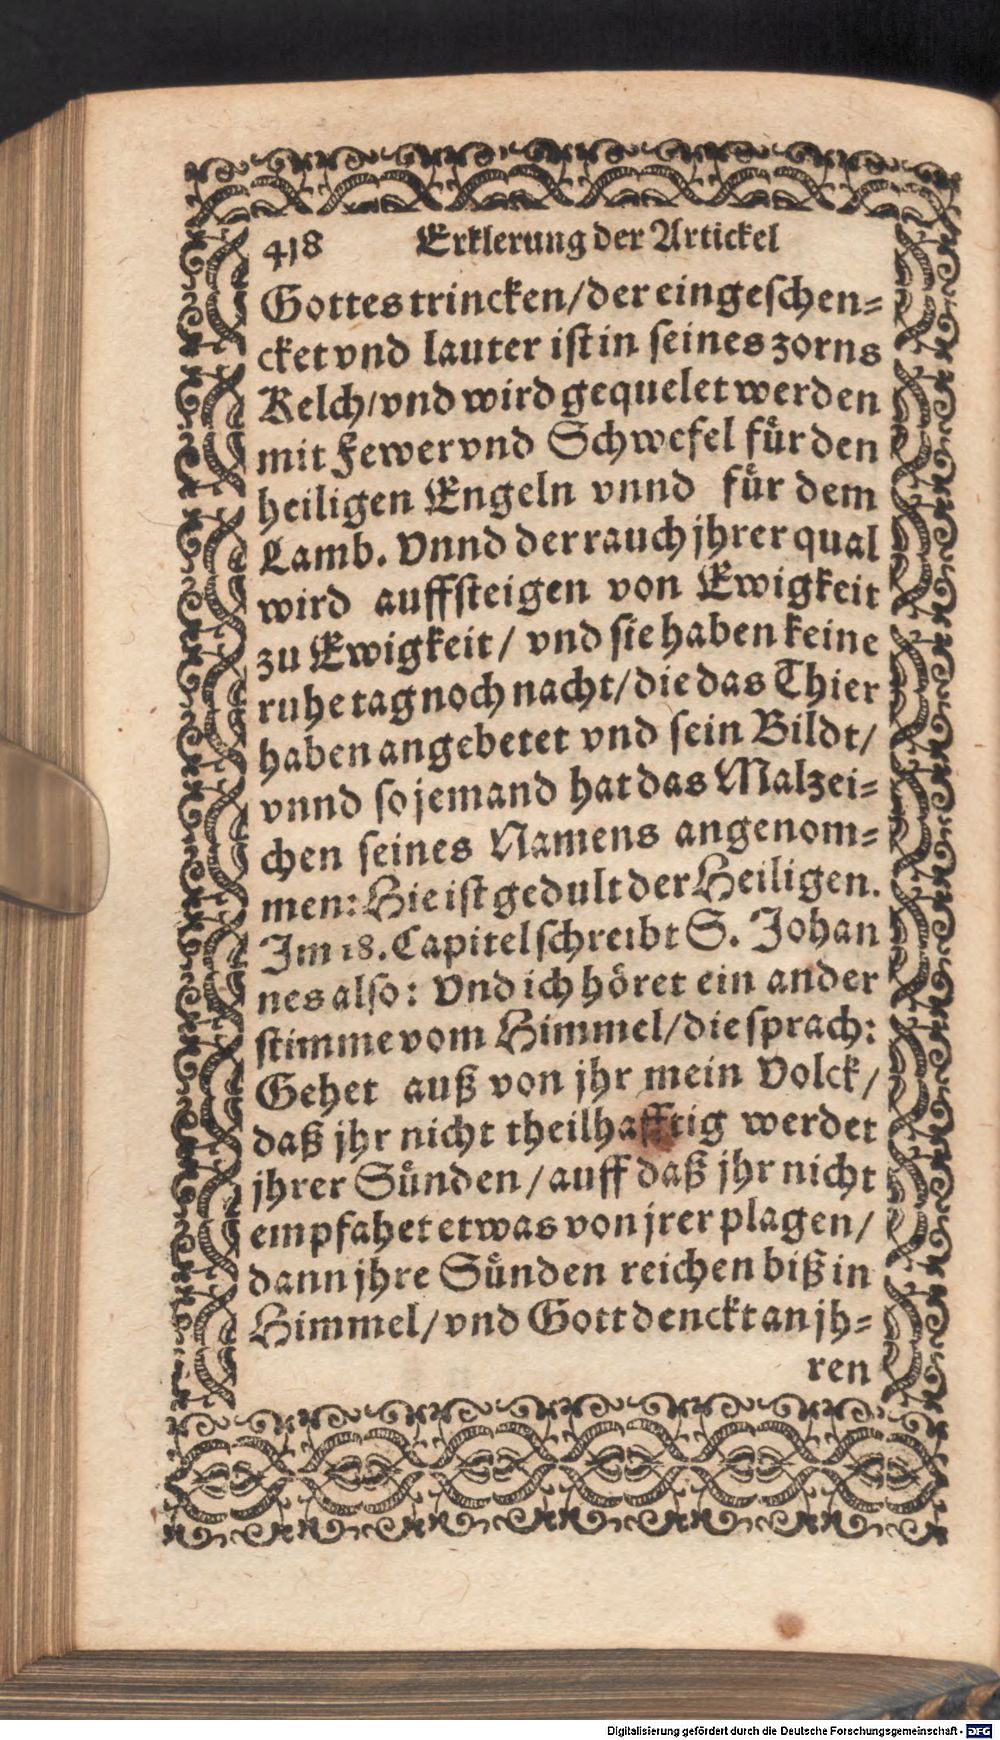 418 Erklerung der Artickel
Gottes trincken/der eingeschen-
cket vnd lauter ist in seines zorns
Kelch/vnd wird gequelet werden
mit Fewer vnd Schwefel fuͤr den
heiligen Engeln vnnd fuͤr dem
Lamb. Vnnd der rauch jhrer qual
wird auffsteigen von Ewigkeit
zu Ewigkeit/ vnd sie haben keine
ruhe tag noch nacht/die das Thier
haben angebetet vnd sein Bildt/
vnnd so jemand hat das Malzei-
chen seines Namens angenom-
men: Hie ist gedult der Heiligen.
Im 18. Capitel schreibt S. Johan
nes also: Vnd ich hoͤret ein ander
stimme vom Himmel/die sprach:
Gehet auß von jhr mein Volck/
daß jhr nicht theilhafftig werdet
jhrer Suͤnden/auff daß jhr nicht
empfahet etwas von jrer plagen/
dann jhre Suͤnden reichen biß in
Himmel/vnd Gott denckt an jh-
ren
Digitalisierung gefördert durch die Deutsche Forschungsgemeinschaft - DFG